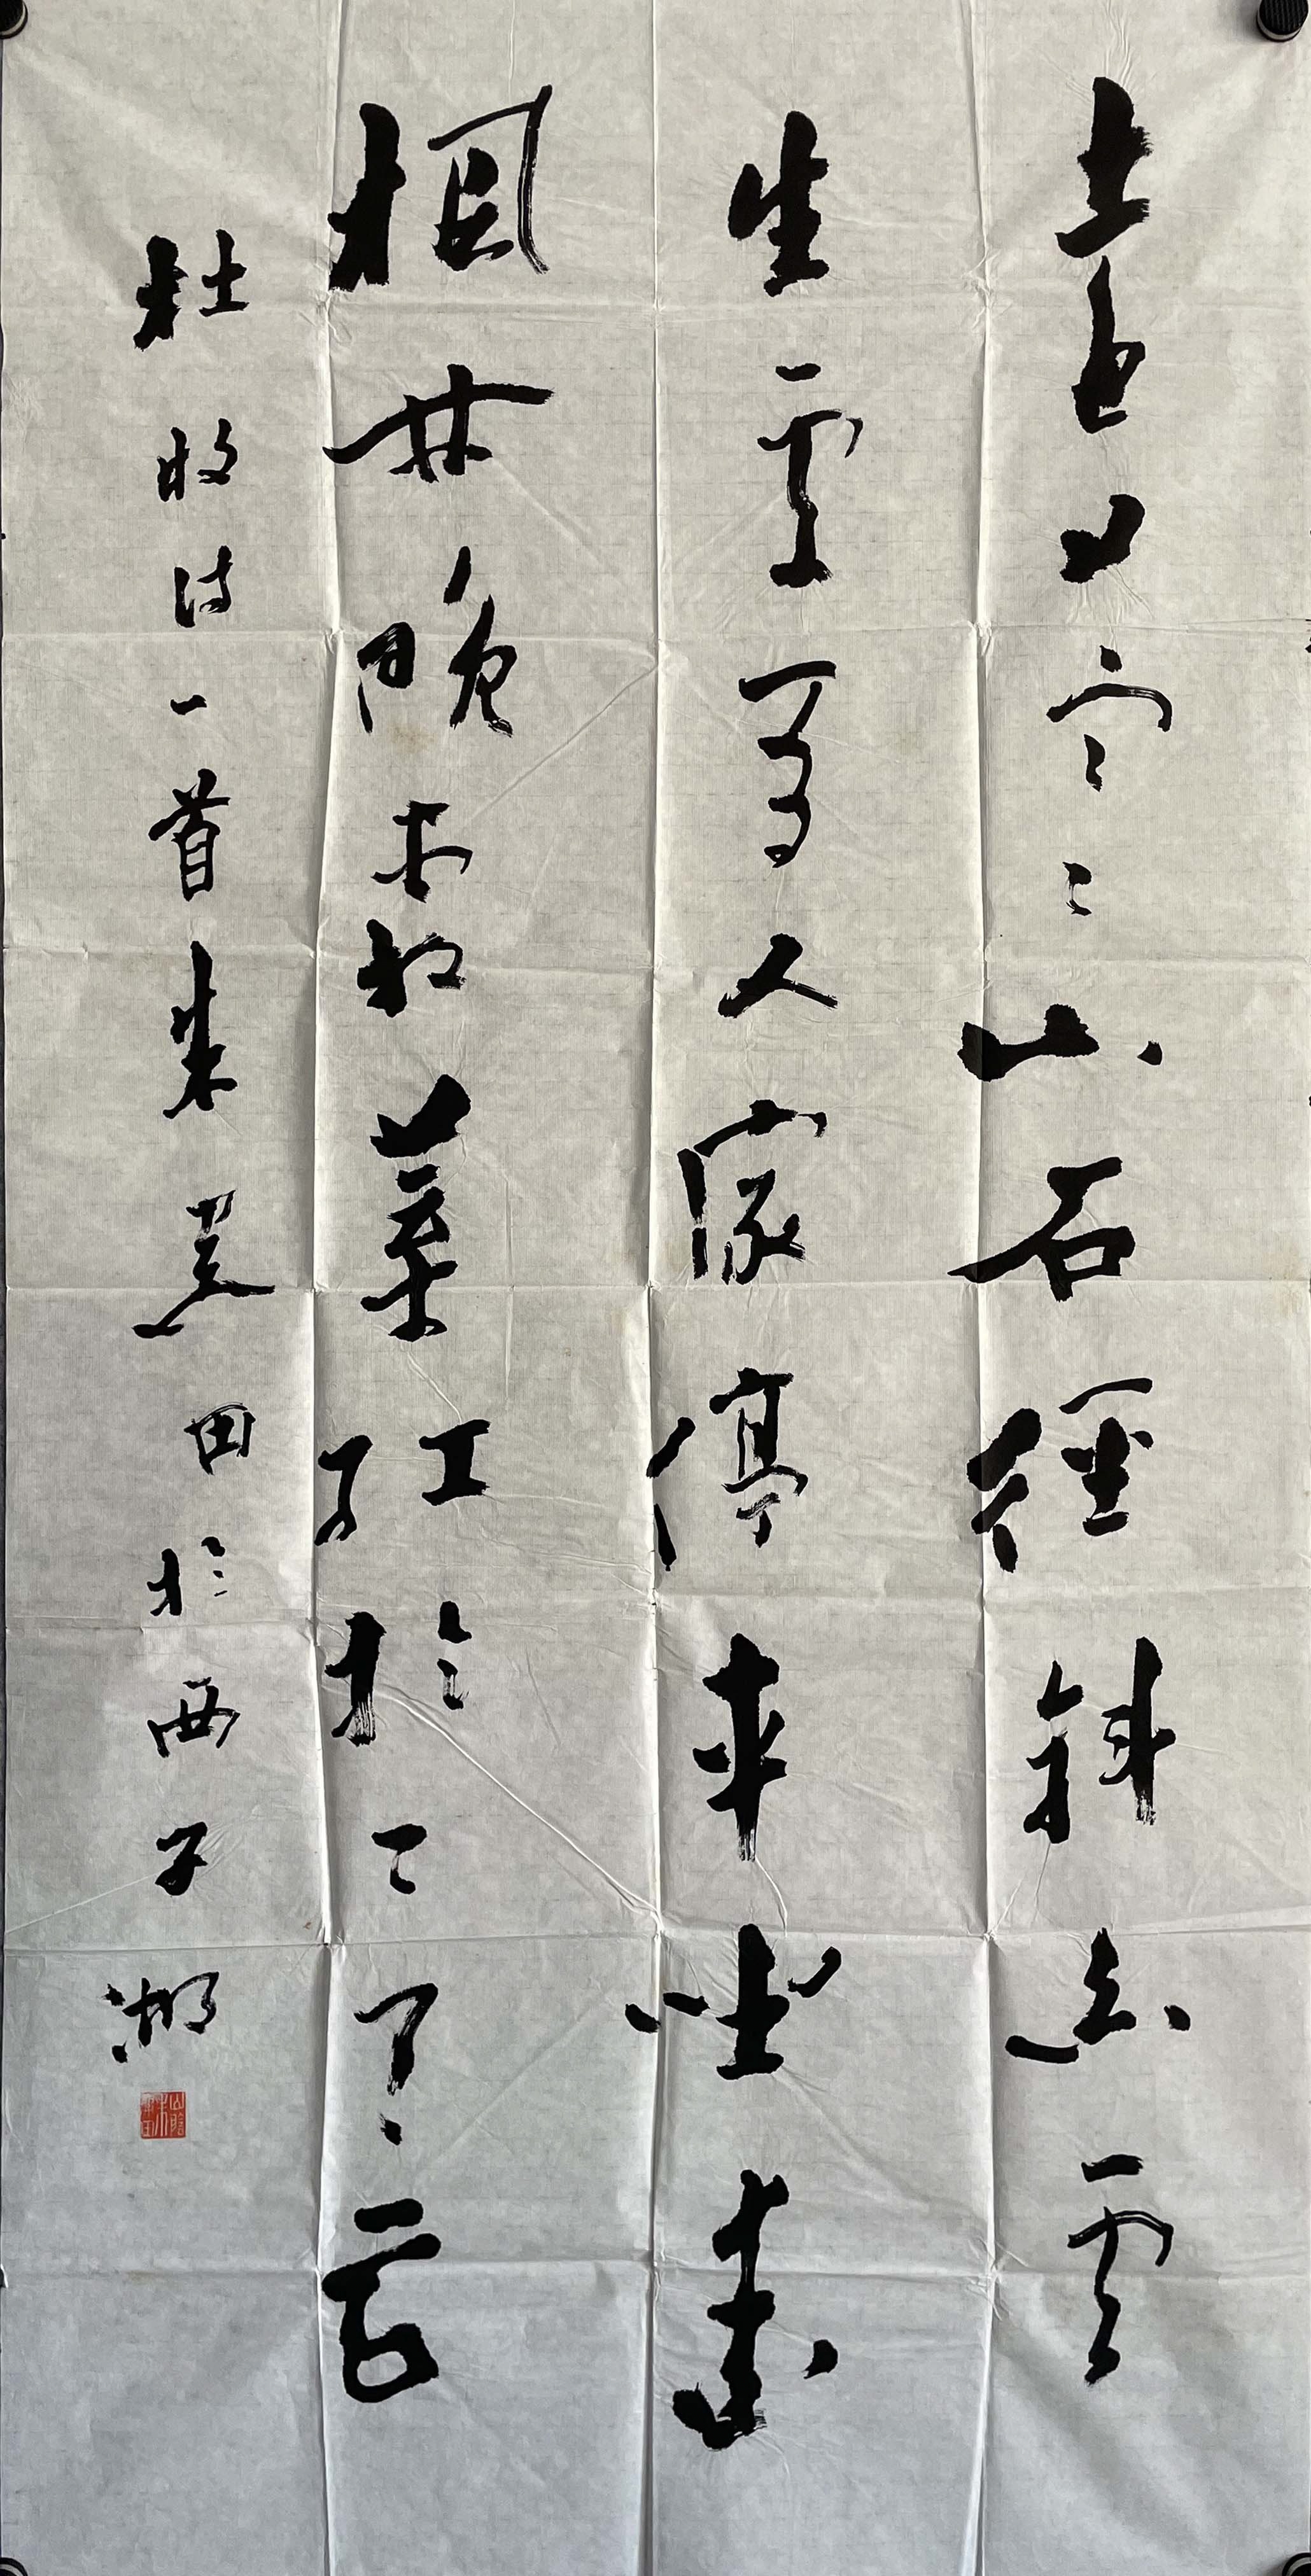 遠上寒山石徑斜白雲
生處有人家停車坐愛
楓林晚霜葉紅於二月花
杜牧詩一首朱關田於西子湖